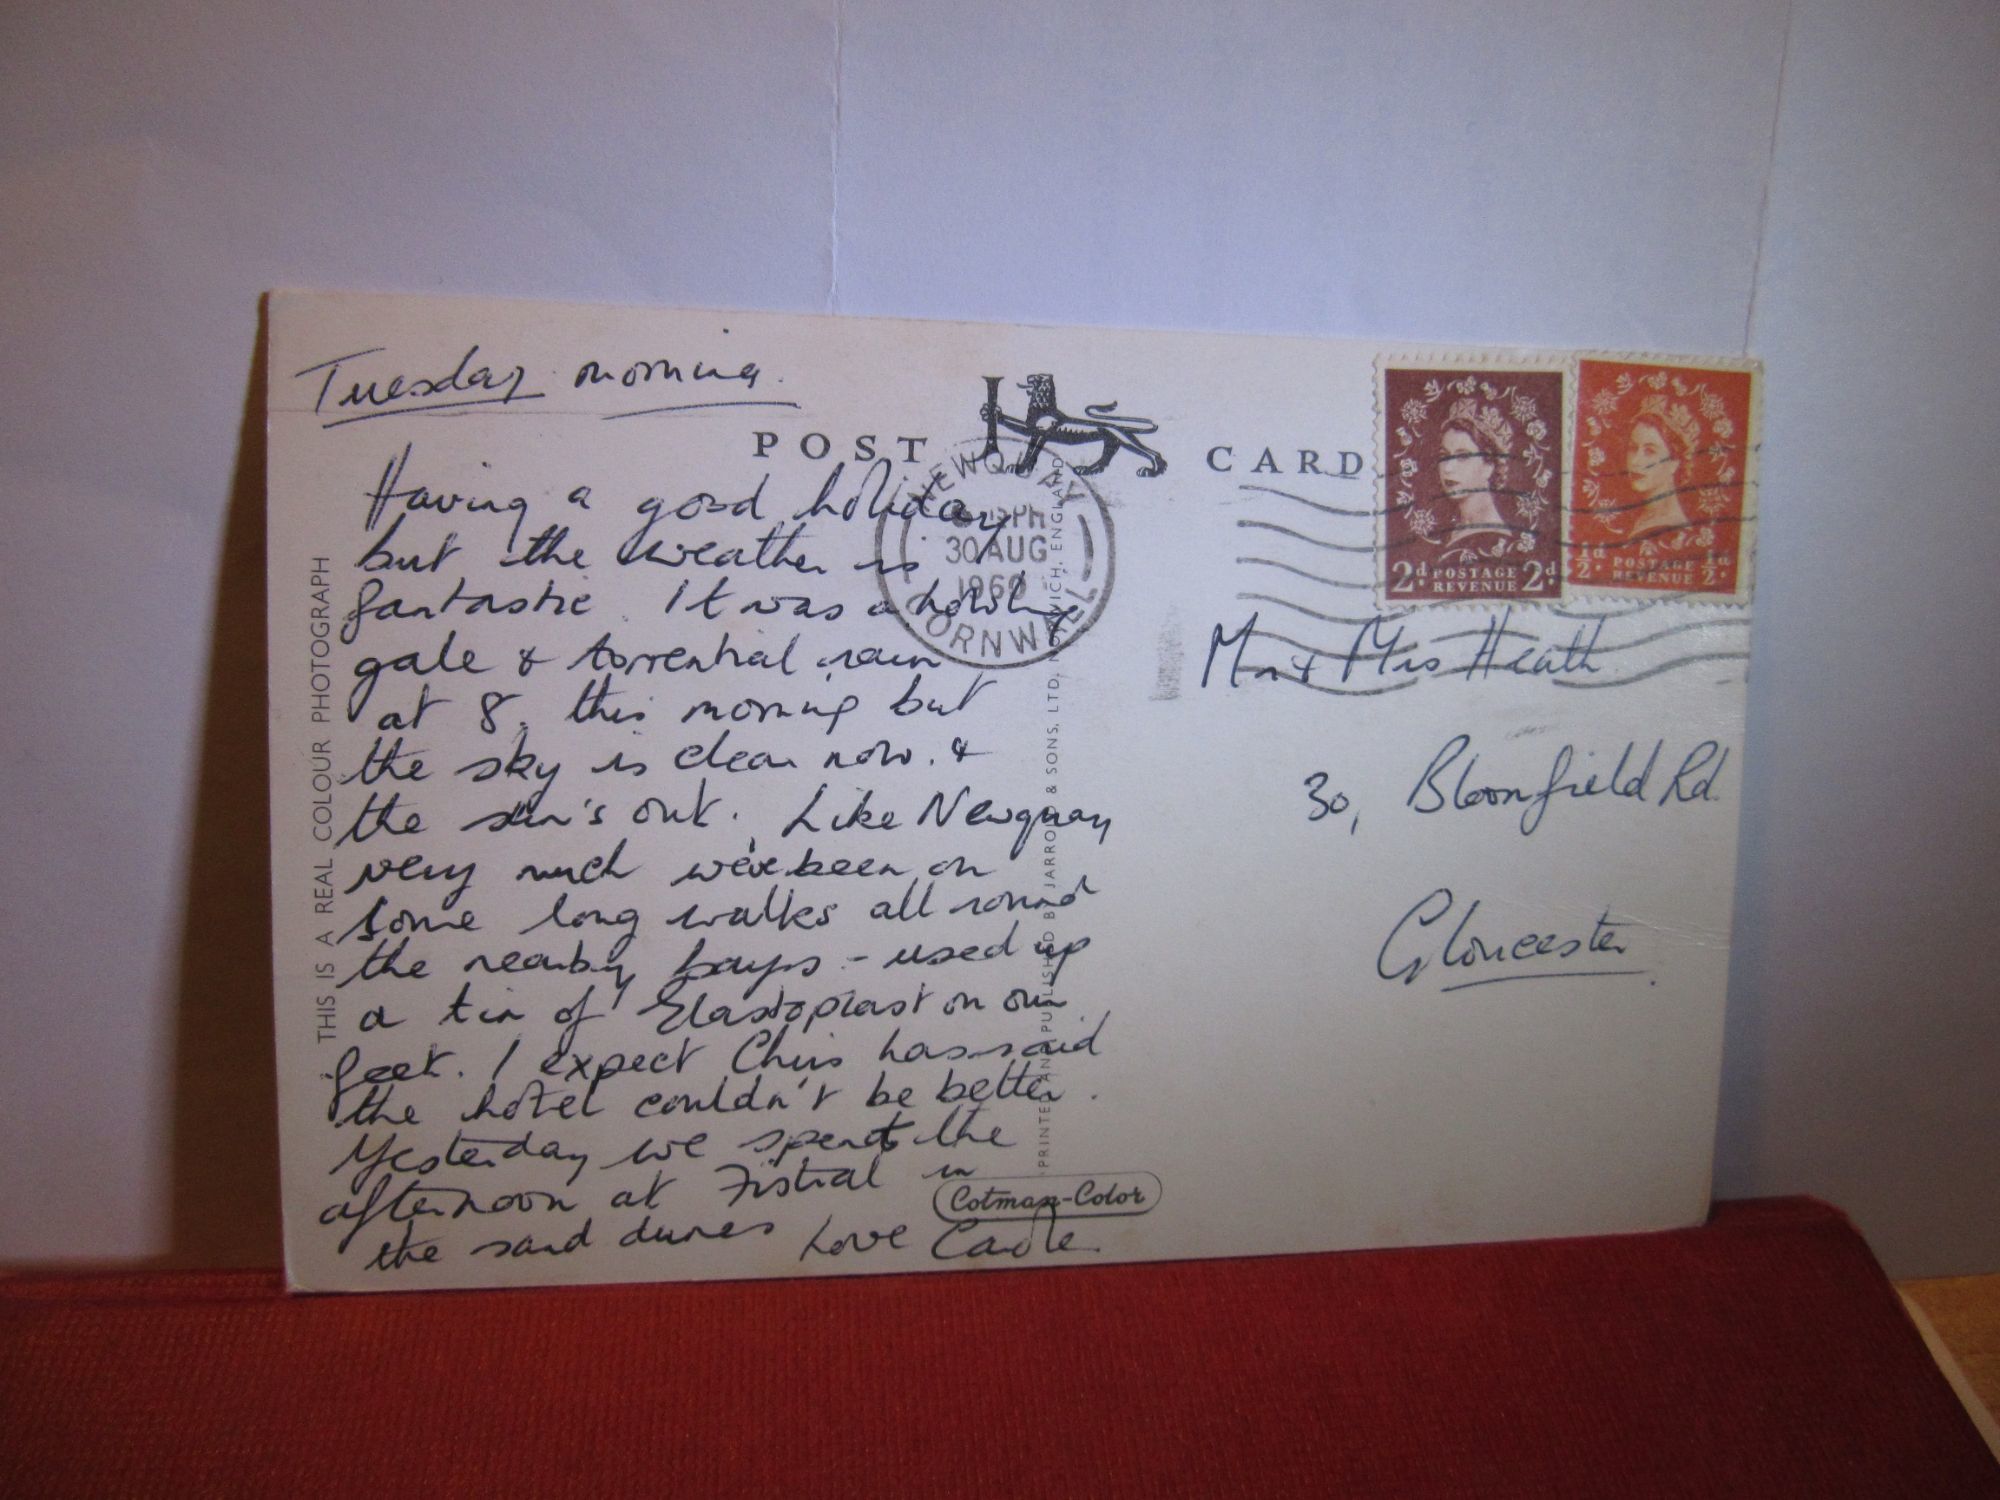 Tuesday morning.
POST CARD
Having a good holiday
but the weather is
fantastic. It was a howling
gale & torrential rain
at 8. this morning but
the sky is clear now. &
the sun's out. Like Newquay
very much we've been on
some long walks all round
the nearby bays - used up
a tin of Elastoplast on our
feet. I expect Chris has said
the hotel couldn't be better.
Yesterday we spent the
afternoon at Fistral in
the sand dunes Love Carole.
THIS IS A REAL COLOUR PHOTOGRAPH
PRINTED AND PUBLISHED BY JARROLD & SONS, LTD, NORWICH, ENGLAND
Cotman-Color
NEWQUAY
PM
30 AUG
1960
CORNWALL
2d. POSTAGE REVENUE 2d.
½d. POSTAGE REVENUE ½d.
Mr & Mrs Heath
30, Bloomfield Rd.
Gloucester.